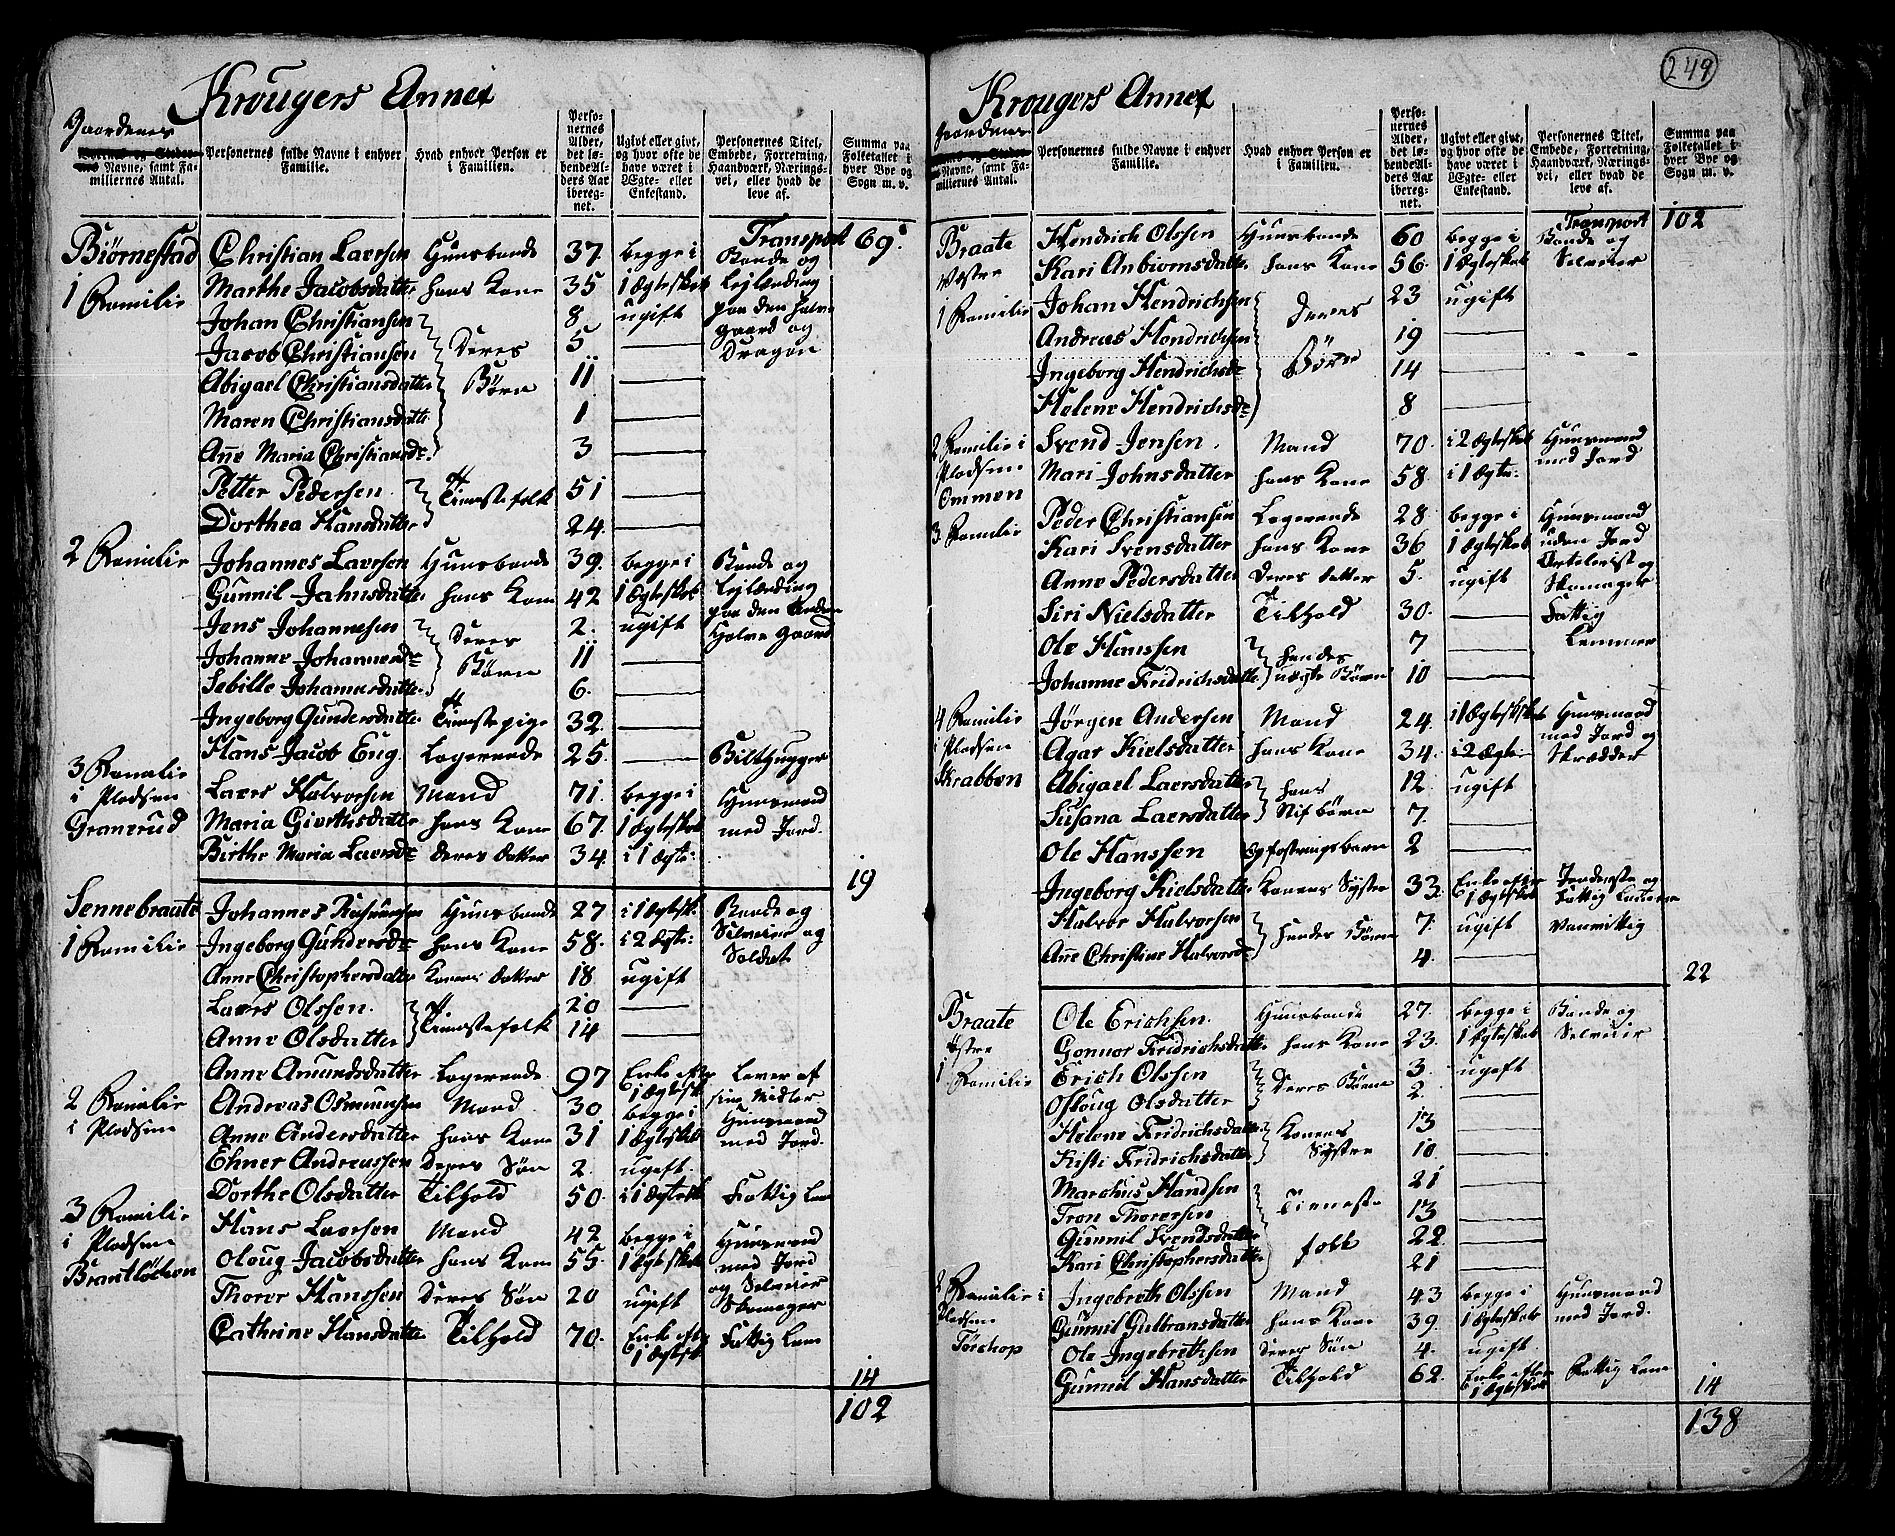 Krougers Annex
Gaardenes
Navne, samt Familiernes Antal.
Personernes fulde Navne i enhver Familie.
Hvad enhver Person er i Familien.
Personernes Alder, det løbende Alders Aar iberegnet.
Ugivt eller givt, og hvor ofte de have været i Ægte- eller Enkestand.
Personernes Titel, Embede, Forretning, Haandværk, Næringsvei, eller hvad de leve af.
Summa paa Folketallet i hver Bye og Sogn m. v.
Transport 69
Biørnestad Christian Larsen Huusbonde 37 begge i Bonde og
1 Familie Marthe Jacobsdatter hans Kone 35 1 Ægteskab Lejlænding
Johan Christiansen 8 ugift paa den halve
Jacob Christiansen Deres 5 — gaard og Dragon
Abigael Christiansdatter Børn 11 —
Maren Christiansdatter 1 —
Añe Maria Christiansdr 3 —
Petter Pedersen Tienestefolk 51 —
Dorthea Hansdatter 24 —
2 Familie Johannes Larsen Huusbonde 39 begge i Bonde og
Gunnil Jahnsdatter hans Kone 42 1 Ægteskab Lejlænding
Jens Johannesen Deres 2 ugift paa den anden
Johanne Johannesdr Børn 11 — Halve Gaard
Sebille Johannesdatter 6 —
Ingeborg Gundersdatter Tienestepige 32 —
Hans Jacob Eug Logerende 25 — Bilthugger
3 Familie
i Pladsen Lars Halvorsen Mand 71 begge i Huusmand
Granerud Maria Giorthsdatter hans Kone 67 1 Ægteskab med Jord
Birthe Maria Larsdr Deres Datter 34 i 1 Ægte:
19
Sennebraate Johannes Rasmusen Huusbonde 27 i 1 Ægtesk: Bonde og
1 Familie Ingeborg Gundersdr hans Kone 58 i 2 Ægte: Selveier og
Anne Christophersdatter Konens Datter 18 ugift Soldat
Lars Olssen Tienestefolk 20 —
Anne Olsdatter 14 —
Anne Amundsdatter Logerende 97 Enke efter 1 Ægtesk Lever af sine Midler
2 Familie Andreas Osmunsen Mand 30 begge i Huusmand
i Pladsen Anne Andersdatter hans Kone 31 1 Ægteskab med Jord
Ehner Andreassen Deres Søn 2 ugift
Dorthe Olsdatter Tilhold 50 i 1 Ægtesk Fattig Lem
3 Familie Hans Larsen Mand 42 begge i Huusmand
i Pladsen Oloug Jacobsdatter hans Kone 55 1 Ægteskab med Jord
Brantløcken Thorer Hanssen Deres Søn 20 ugift og Selveier Skomager
Cathrine Hansdatter Tilhold 70 Enke efter 1 Ægtesk Fattig Lem
14
102
249
Krougers Annex
Gaardenes
Navne, samt Familiernes Antal.
Personernes fulde Navne i enhver Familie.
Hvad enhver Person er i Familien.
Personernes Alder, det løbende Alders Aar iberegnet.
Ugivt eller givt, og hvor ofte de have været i Ægte- eller Enkestand.
Personernes Titel, Embede, Forretning, Haandværk, Næringsvei, eller hvad de leve af.
Summa paa Folketallet i hver Bye og Sogn m. v.
Transport 102
Braate Hendrich Olssen Huusbonde 60 begge i Bonde og
Vestre Kari Anbiornsdatter hans Kone 56 1 Ægteskab Selveier
1 Familie Johan Hendrichsen Deres 23 ugift
Andreas Hendrichsen 19 —
Ingeborg Hendrichsdr Børn 14 —
Helene Hendrichsdr 8 —
2 Familie i Svend Jensen Mand 70 i 2 Ægteskab Huusmand
Pladsen Mari Johnsdatter hans Kone 58 i 1 Ægte: med Jord
Ommen
3 Familie Peder Christiansen Logerende 28 begge i Huusmand
Kari Svensdatter hans Kone 36 1 Ægteskab uden Jord
Anne Pedersdatter Deres Datter 5 ugift Artelerist og Skomager
Siri Nielsdatter Tilhold 30 — Fattig
Ole Hanssen hendes 7 — Lemmer
Johanne Fridrichsdatter uægte Børn 10 —
4 Familie Jørgen Andersen Mand 24 i 1 Ægteskab Huusmand
i Pladsen Agar Kielsdatter hans Kone 34 i 2 Ægte: med Jord og
Krabben Abigael Larsdatter hans 12 ugift Skrædder
Susana Larsdatter Stifbørn 7 —
Ole Hanssen Opfostringsbarn 2 —
Ingeborg Kielsdatter Konens Syster 33 Enke efter 1 Ægteskab
Halvor Halvorsen hendes Børn 7 ugift Vanvittig
Añe Christine Halvorsdr 4 —
22
Braate Ole Erichsen Huusbonde 27 begge i Bonde og
Østre Gonnor Fridrichsdatter hans Kone 23 1 Ægteskab Selveier
1 Familie Erich Olssen Deres Børn 3 ugift
Osloug Olsdatter 2 —
Helene Fridrichsdatter Konens 13 —
Kisti Fridrichsdatter Syster 10 —
Marchus Handsen Tieneste 21 —
Tron Thorersen 13 —
Gunnil Svendsdatter folk 22 —
Kari Christophersdatter 21 —
2 Familie i Ingebreth Olssen Mand 43 begge i Huusmand
Pladsen Gunnil Gulbransdatter hans Kone 39 1 Ægteskab med Jord
Tørchop Ole Ingebrethsen Deres Søn 4 ugift
Gunnil Hansdatter Tilhold 62 Enke efter 1 Ægteskab Fattig Lem
14
138